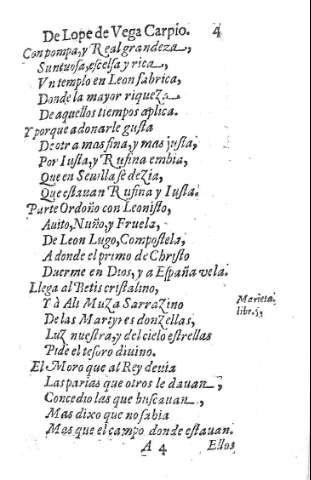 De Lope de Vega Carpio. 4
Con pompa, y Real grandeza,
Suntuosa, escelsa y rica,
Vn templo en Leon fabrica,
Donde la mayor riqueza
De aquellos tiempos aplica.
Y porque adonarle gusta
De otra mas fina, y mas justa,
Por Iusta, y Rufina embia,
Que en Seuilla se dezia,
Que estauan Rufina y Iusta.
Parte Ordoño con Leonisto,
Auito, Nuño, y Fruela,
De Leon Lugo, Compostela,
A donde el primo de Christo
Duerme en Dios, y a España vela.
Llega al Betis cristalino,
Y à Ali Muza Sarrazino
De las Martyres donzellas,
Luz nuestra, y del cielo estrellas
Pide el tesoro diuino.
Marieta.
libr. 5,
El Moro que al Rey deuia
Las parias que otros le dauan,
Concedio las que buscauan,
Mas dixo que no sabia
Mas que el campo donde estauan.
A 4 Ellos